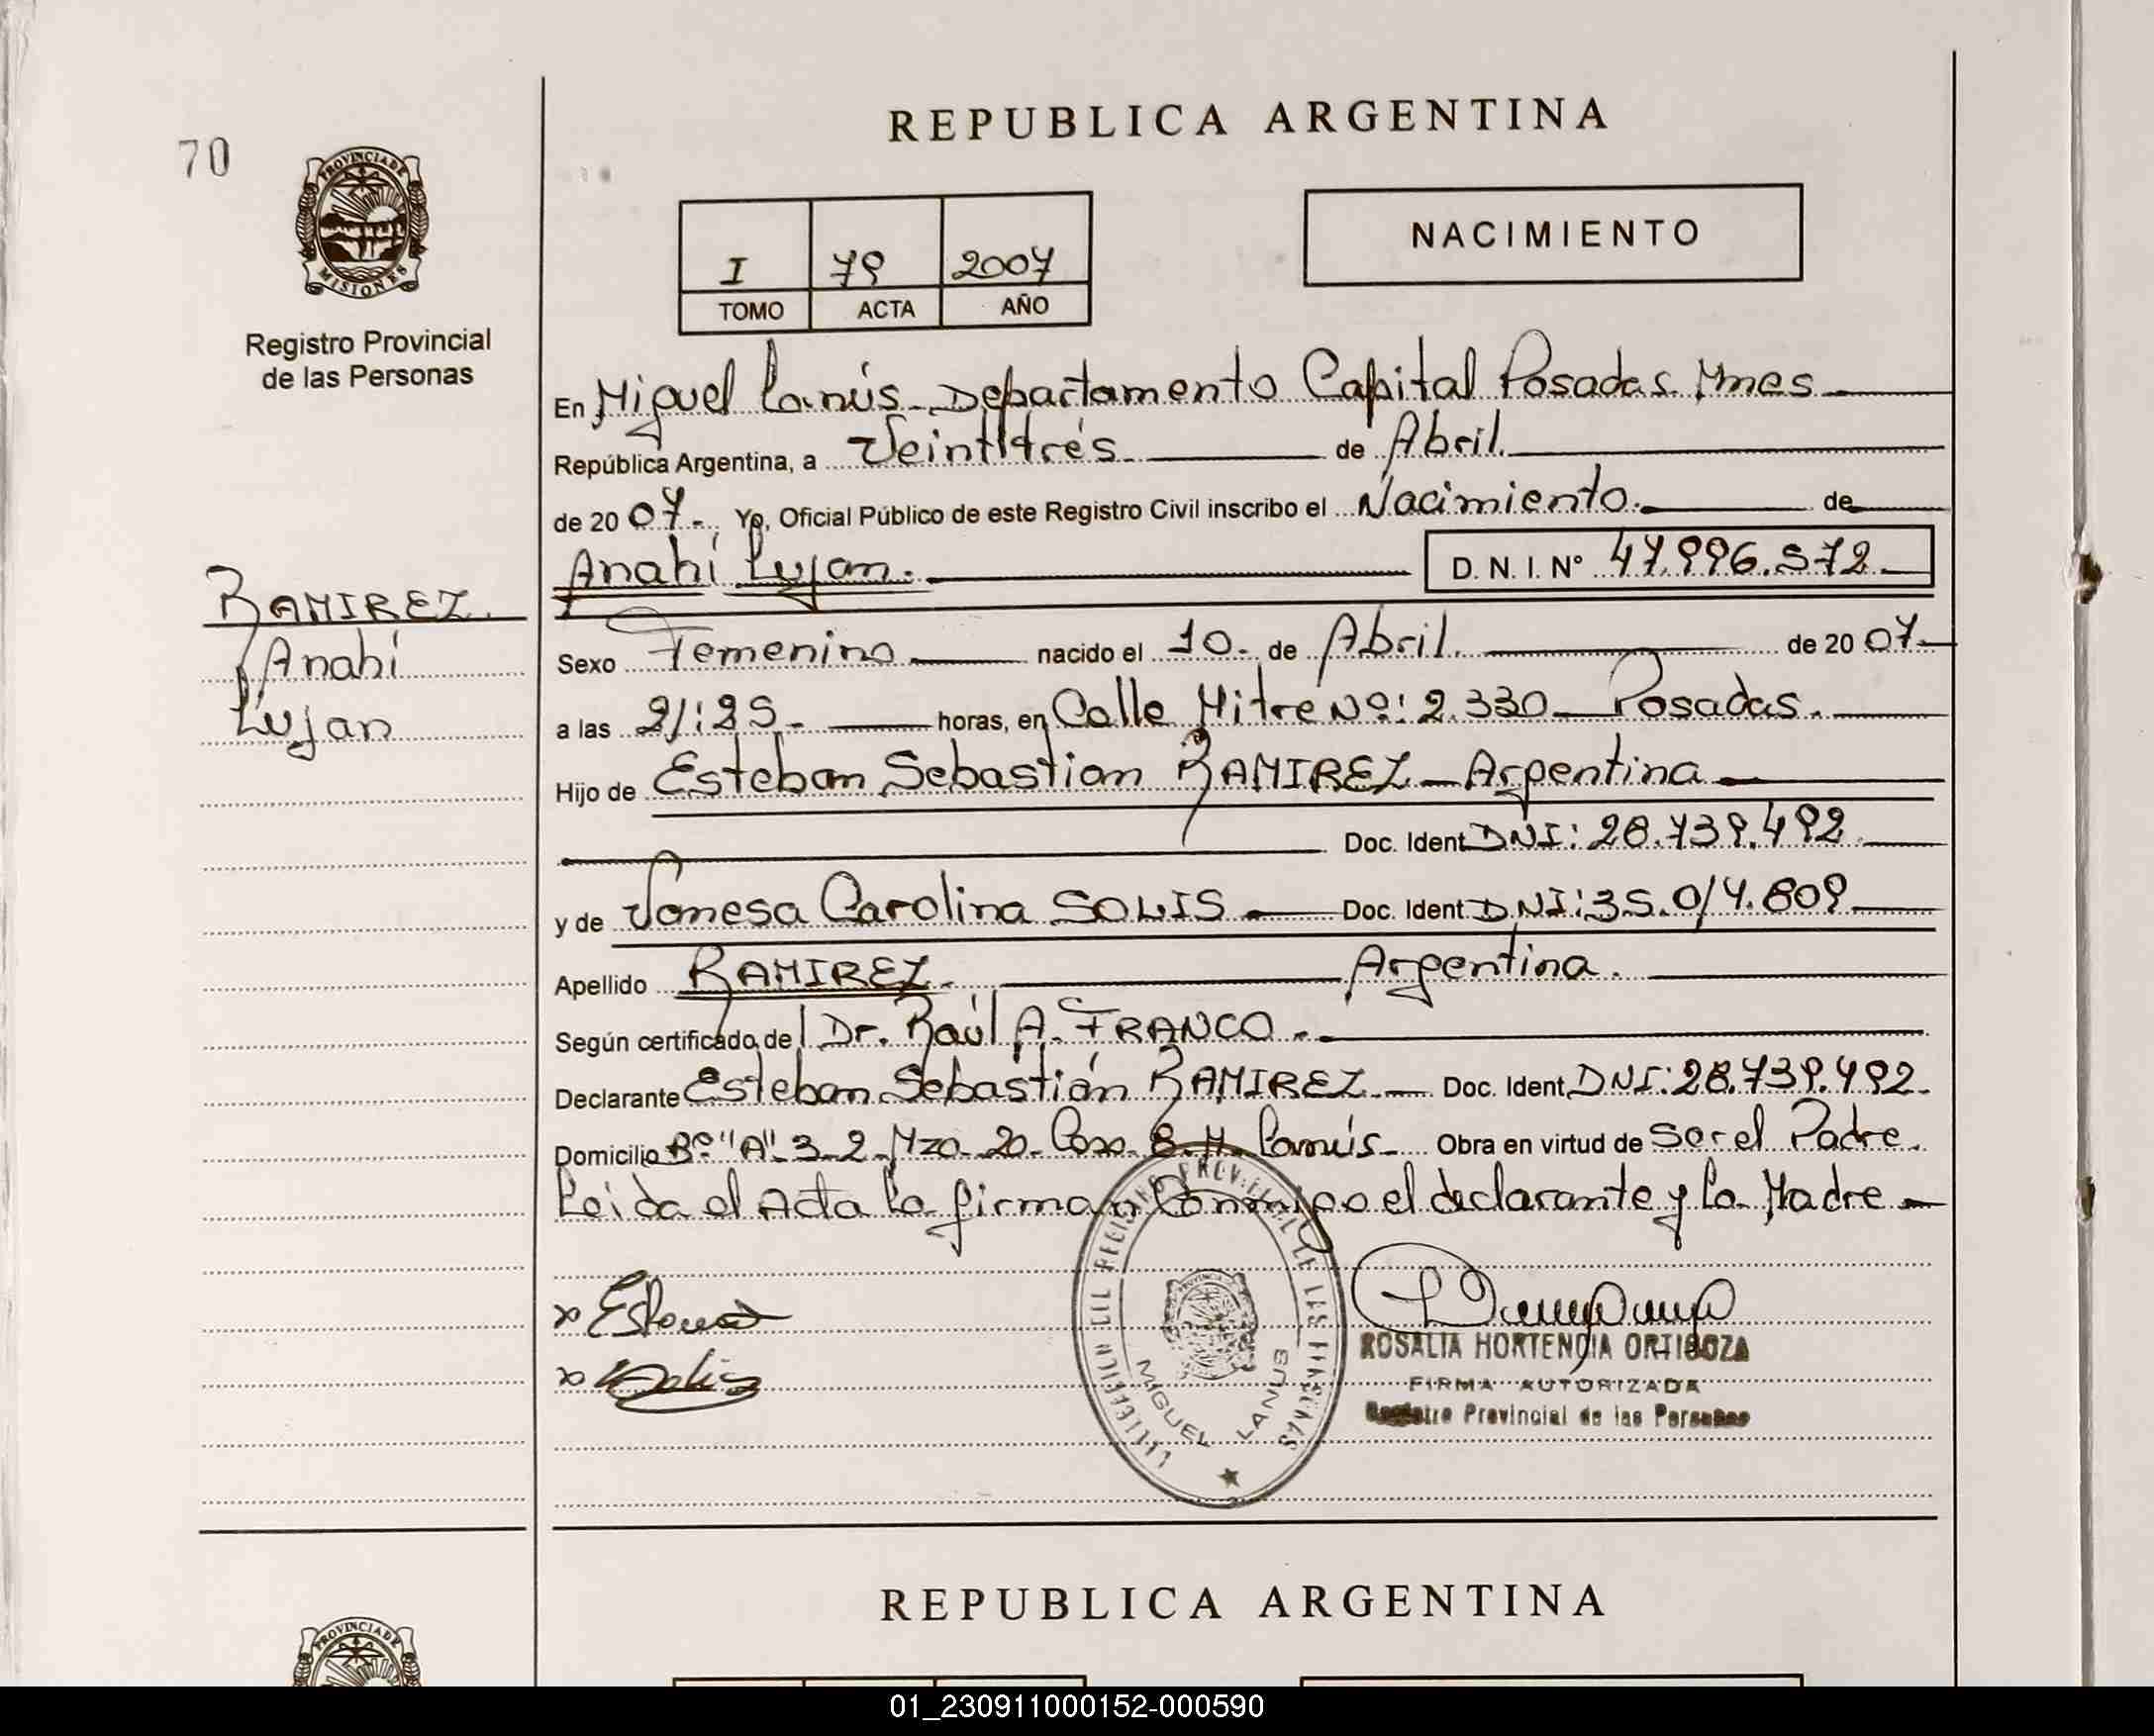 REPUBLICA ARGENTINA
70
PROVINCIA DE
MISIONES
NACIMIENTO
I 79 2007
TOMO ACTA AÑO
Registro Provincial
de las Personas
En Miguel Lanús - Departamento Capital Posadas Mnes
República Argentina, a Veintitrés de Abril.
de 20 07.- Yo, Oficial Público de este Registro Civil inscribo el Nacimiento. de
Anahi Lujan. D. N. I. Nº 47.996.572.
RAMIREZ.
Anahi
Lujan
Sexo Femenino nacido el 10. de Abril. de 20 07
a las 21:25. horas, en Calle Mitre Nº: 2.330 - Posadas.
Hijo de Esteban Sebastian RAMIREZ - Argentina
Doc. Ident. DNI: 28.739.492
y de Vanesa Carolina SOLIS Doc. Ident. DNI: 35.014.809
Apellido RAMIREZ. Argentina.
Según certificado de Dr. Raúl A. FRANCO.
Declarante Esteban Sebastián RAMIREZ Doc. Ident. DNI: 28.739.492.
Domicilio Bº "A" 3-2- Mza. 20- Casa. 8- M. Lanús. Obra en virtud de Ser el Padre.
Leida el Acta la firman Conmigo el declarante y la Madre
MIGUEL LANUS
ROSALIA HORTENCIA ORTIGOZA
FIRMA AUTORIZADA
Registro Provincial de las Personas
REPUBLICA ARGENTINA
PROVINCIA DE
01_230911000152-000590